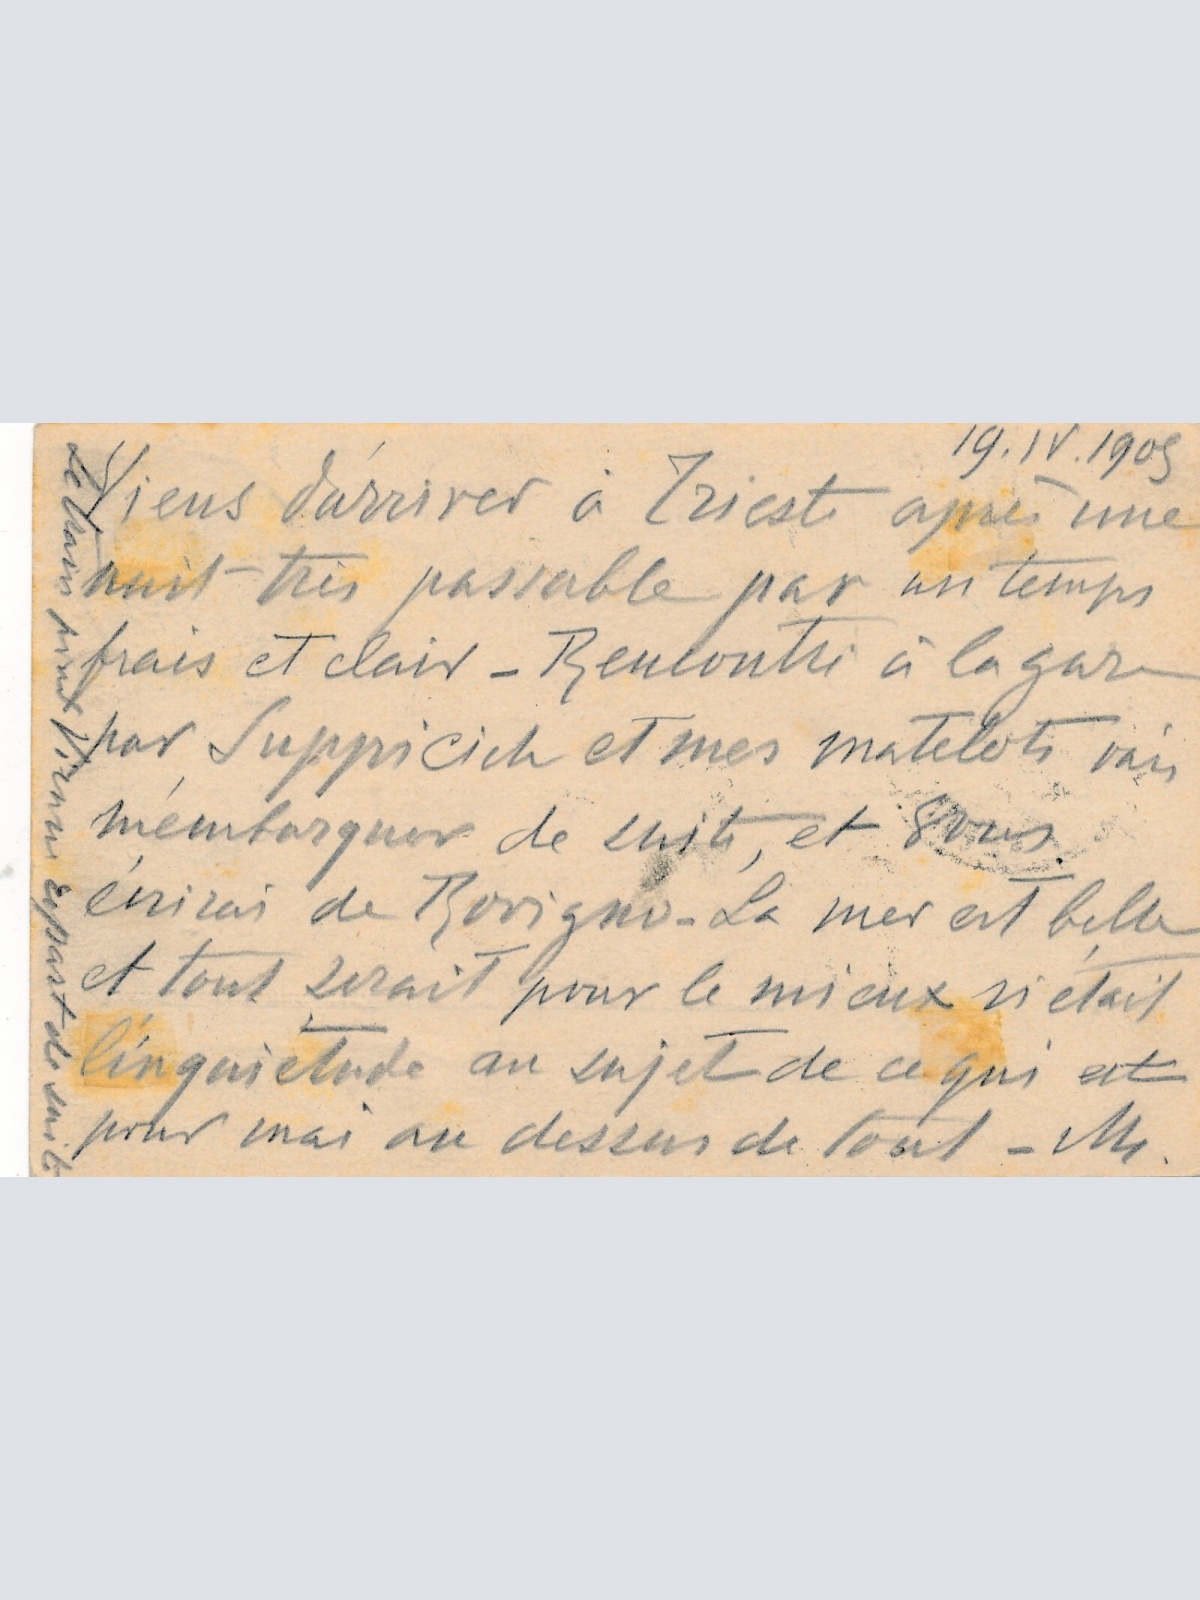 19.IV.1905
Viens d'arriver à Trieste après une
nuit très passable par un temps
frais et clair – Rencontré à la gare
par Suppicich et mes matelots vais
m'embarquer de suite, et vous
écrirai de Rovigno – La mer est belle
et tout serait pour le mieux si était
l'inquiétude au sujet de ce qui est
pour moi au dessus de tout – M.
Le train pour Vienne repart de suite